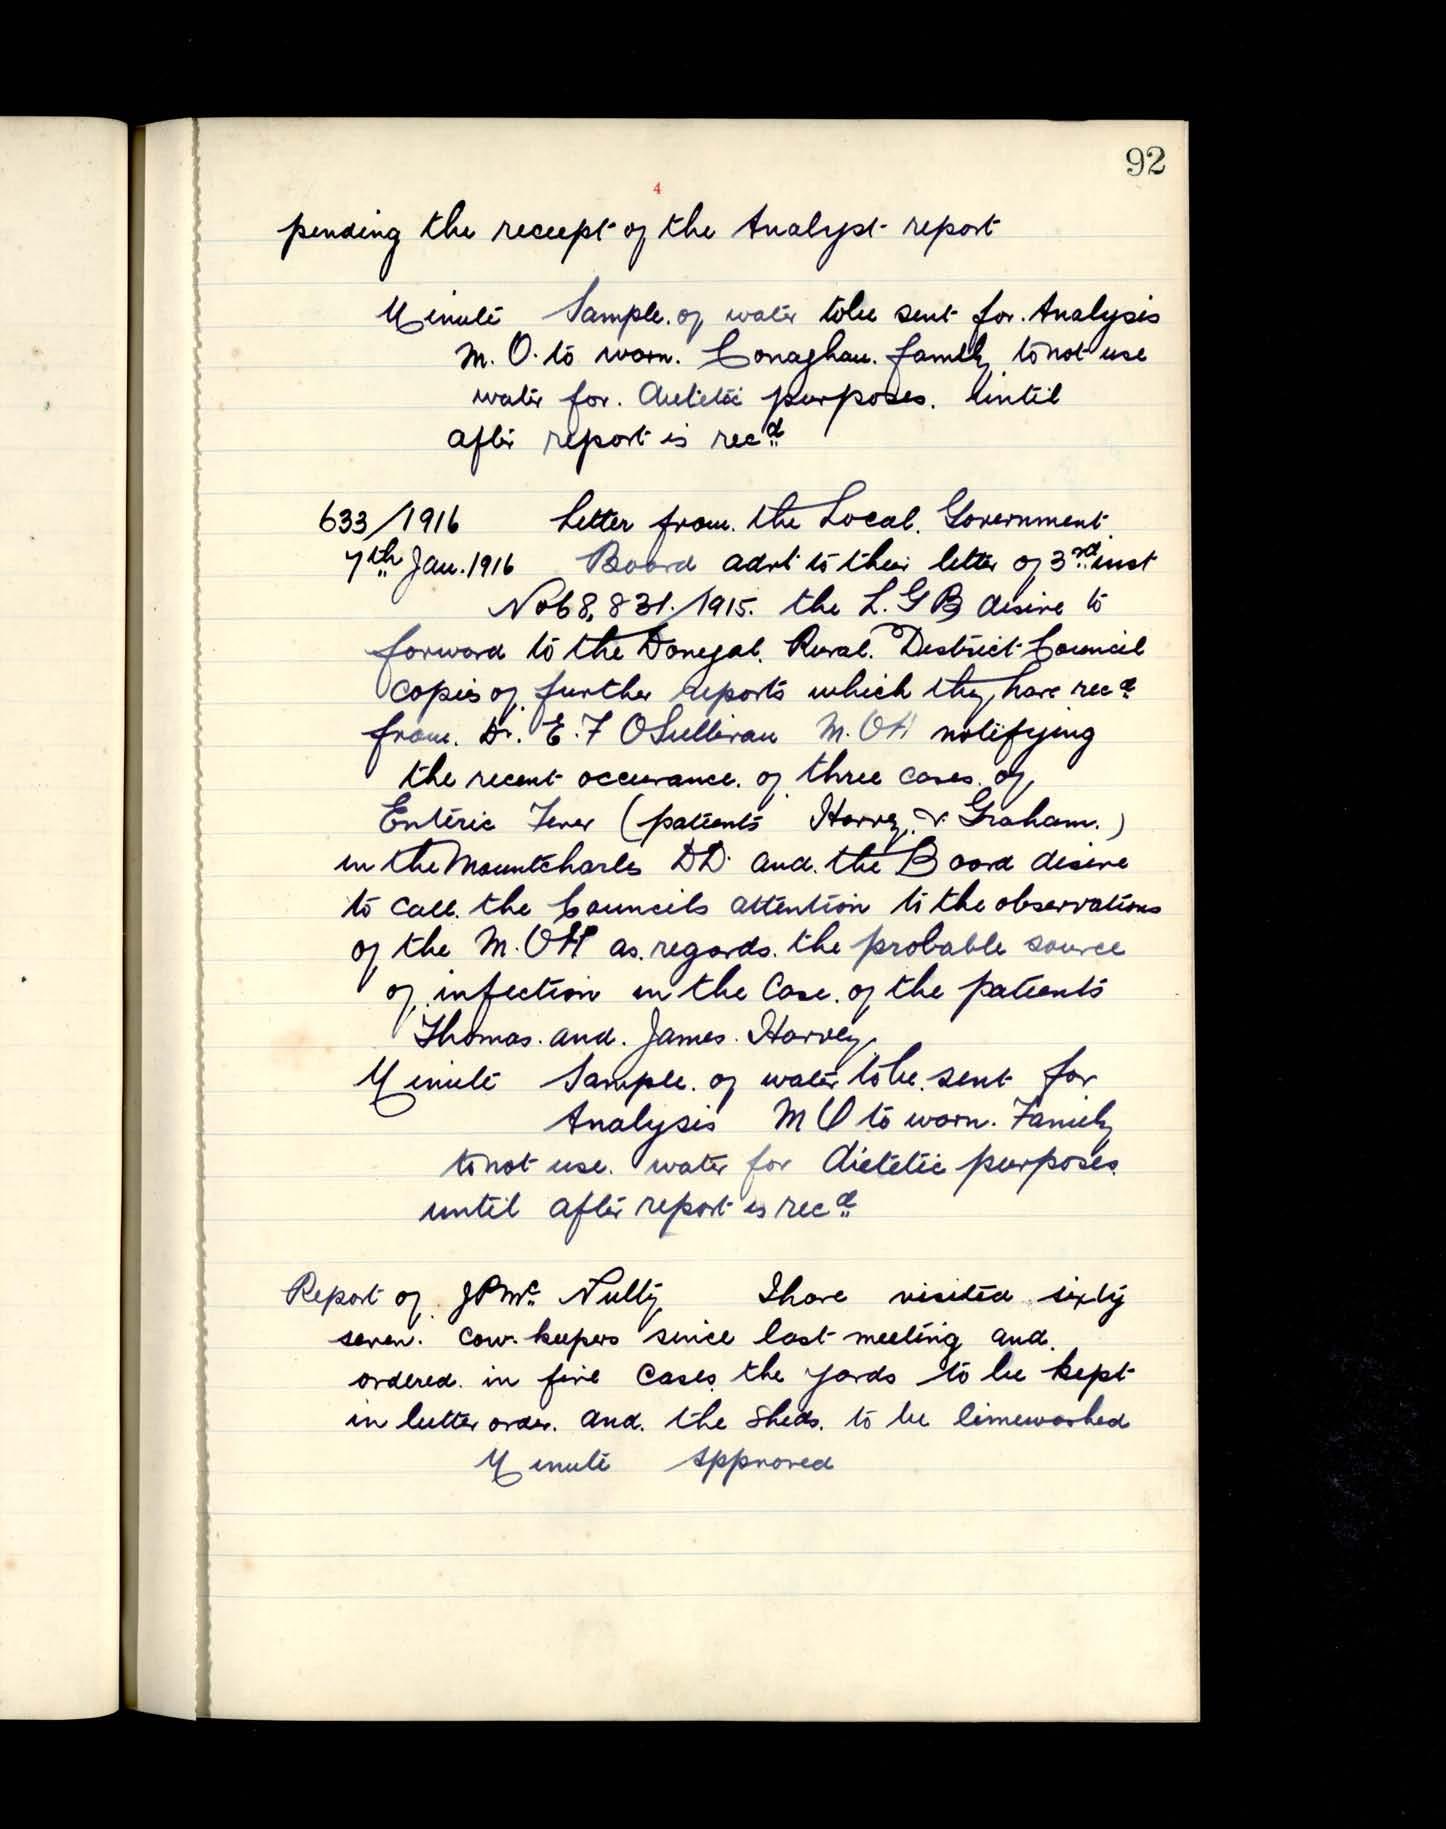 92
4
pending the receipt of the Analyst report
Minute Sample. of water to be sent for. Analysis
M. O. to warn. Conaghan. family to not use
water for. dietetic purposes. Until
after report is recd
633/1916 Letter from. the Local. Government
7th Jan. 1916 Board advt to their letter of 3rd inst
No 68,831/1915. the L. G B desire to
forward to the Donegal. Rural. District Council
copies of further reports which they have recd
from. Dr. E. F O Sullivan M. OH notifying
the recent occurance. of three cases. of
Enteric Fever (patients Harvey. & Graham.)
in the Mountcharles DD. and. the Board desire
to call. the Councils attention to the observations
of the M. OH as. regards. the probable source
of. infection in the Case. of the patients
Thomas. and. James. Harvey.
Minute Sample. of water to be. sent for
Analysis M O to warn. Family
to not use. water for dietetic purposes.
until after report is recd
Report of. JP Mc Nulty I have visited sixty
seven. cow. keepers since last meeting and.
ordered. in five cases the yards to be kept
in better order. and. the sheds. to be limewashed
Minute Approved